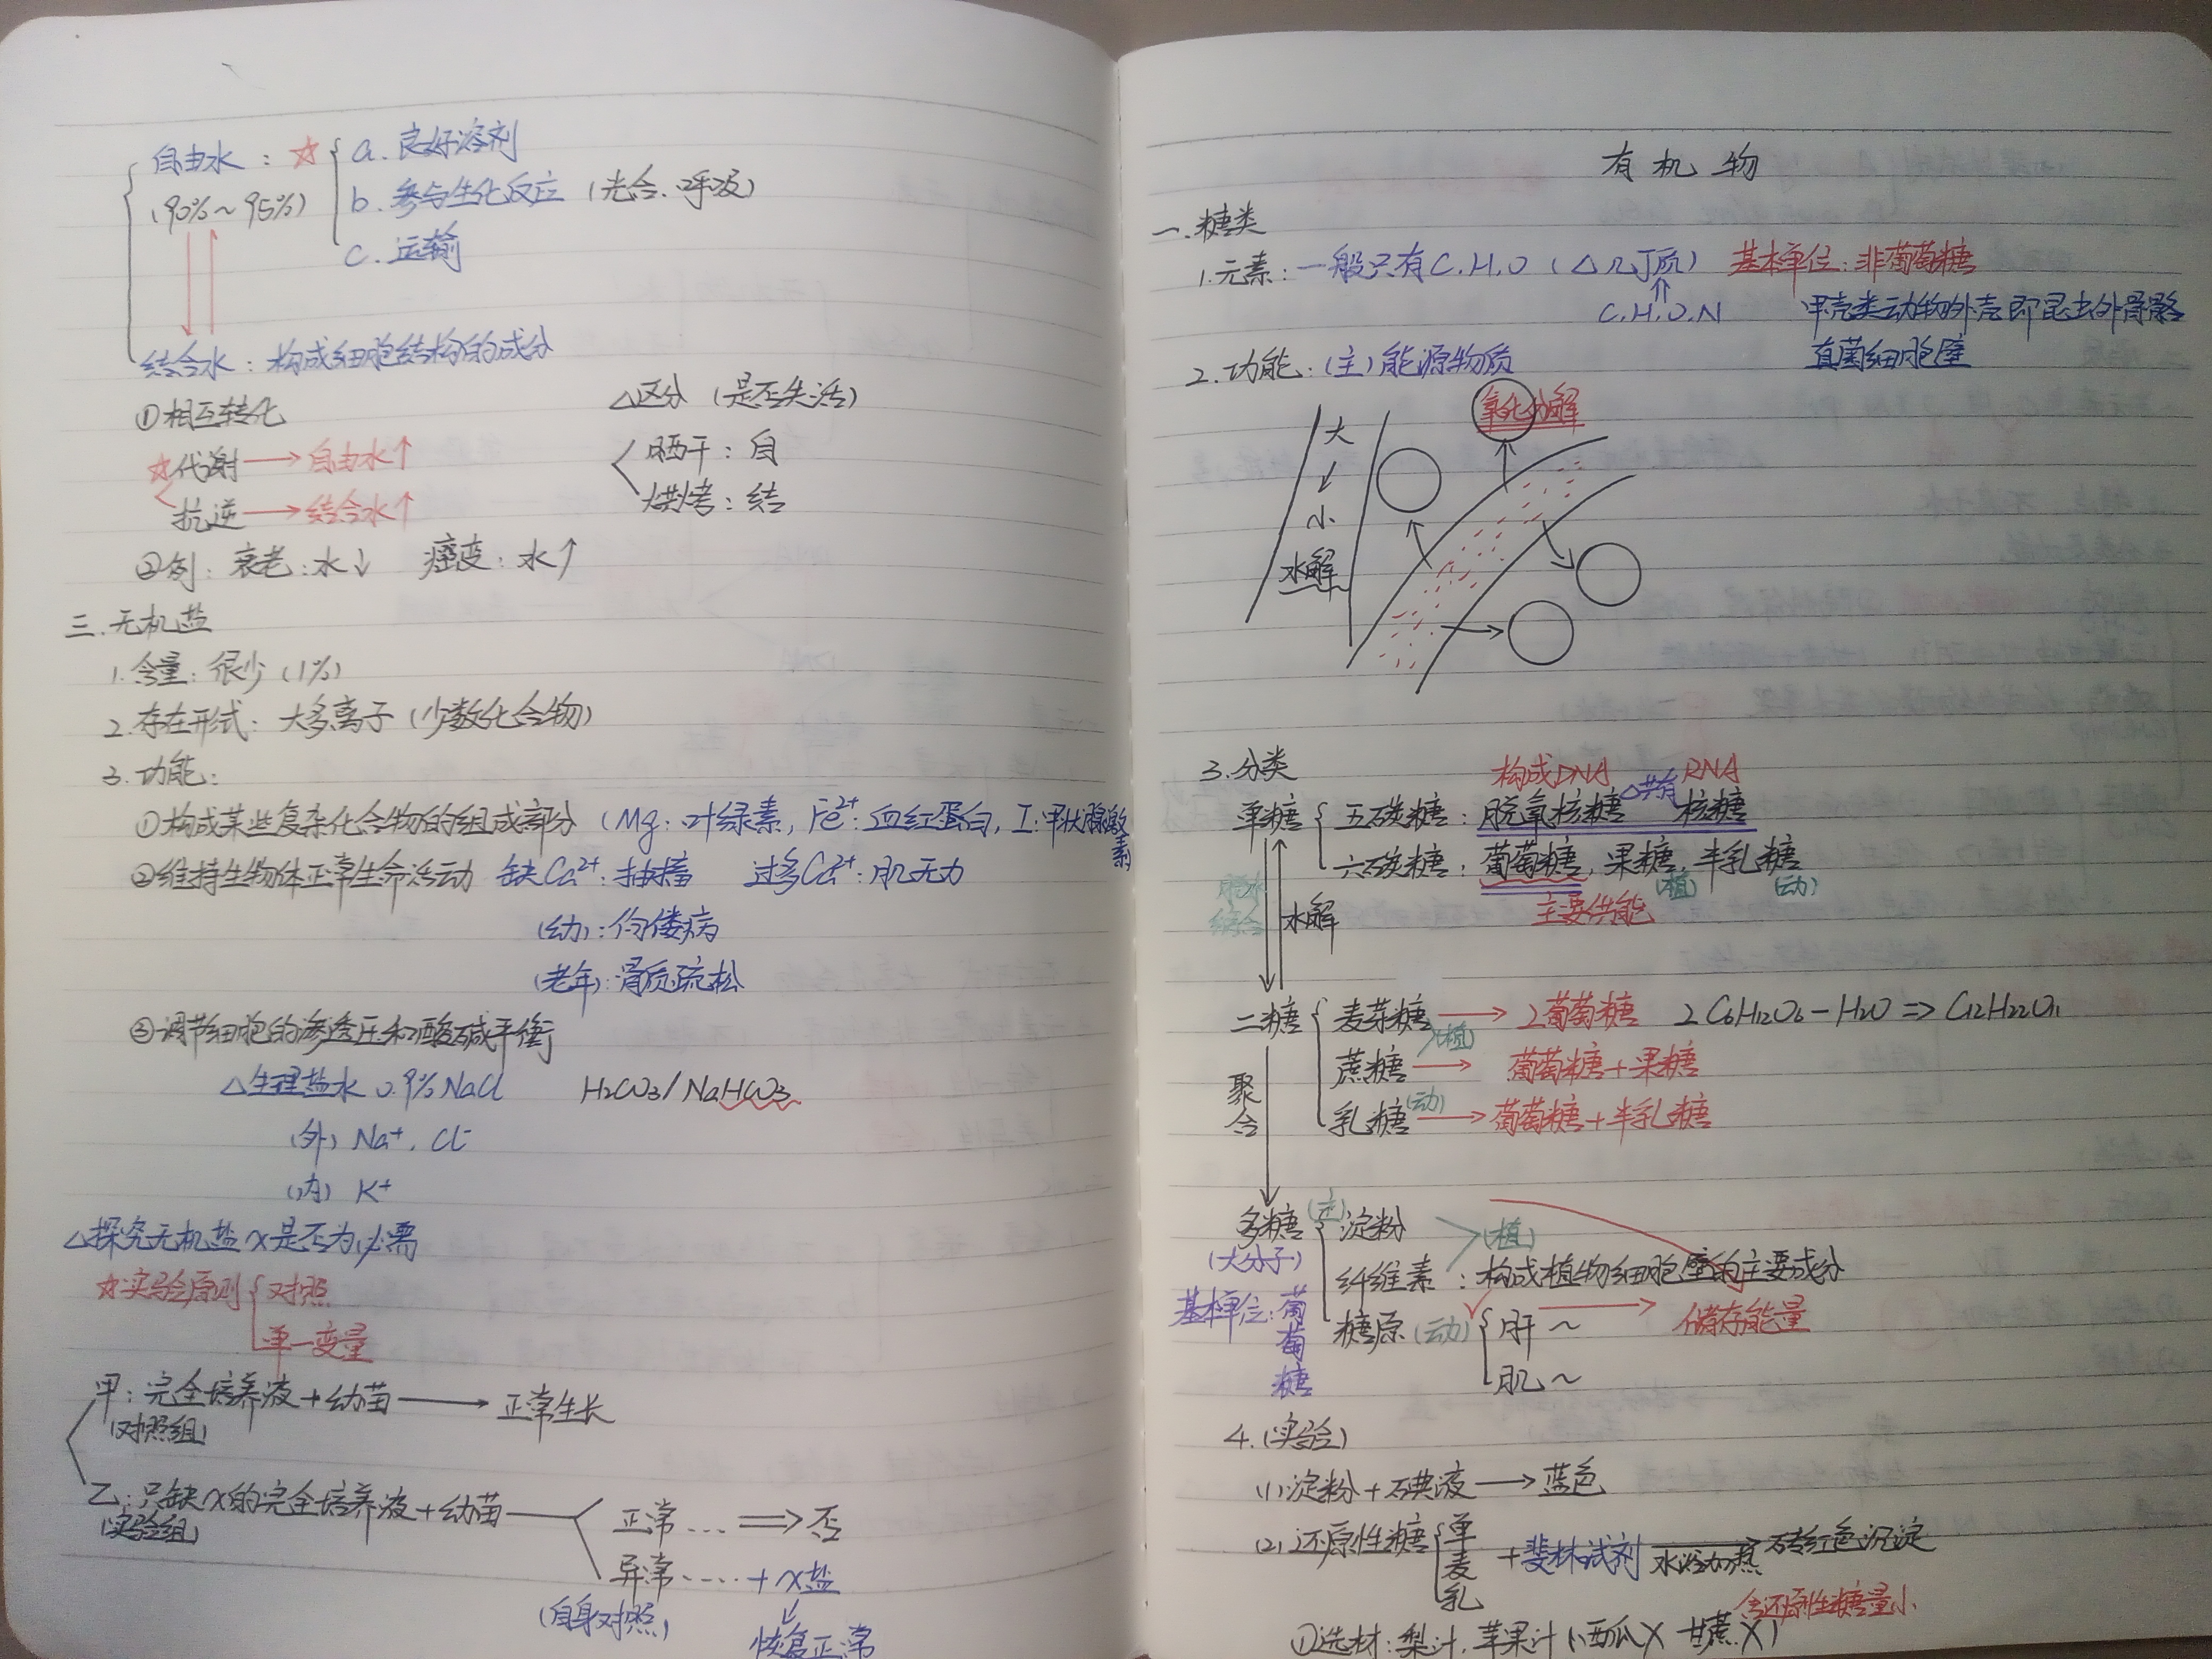 自由水：☆ a. 良好溶剂
(90%～95%) b. 参与生化反应 (光合.呼吸)
c. 运输
结合水：构成细胞结构的成分
①相互转化
☆代谢→自由水↑
抗逆→结合水↑
△区分 (是否失活)
晒干：自
烘烤：结
②例：衰老：水↓ 癌变：水↑
三.无机盐
1.含量：很少 (1%)
2.存在形式：大多离子 (少数化合物)
3.功能：
①构成某些复杂化合物的组成部分 (Mg：叶绿素, Fe²⁺：血红蛋白, I：甲状腺激素)
②维持生物体正常生命活动 缺Ca²⁺：抽搐 过多Ca²⁺：肌无力
(幼)：佝偻病
(老年)：骨质疏松
③调节细胞的渗透压和酸碱平衡
△生理盐水 0.9%NaCl H₂CO₃/NaHCO₃
(外) Na⁺. Cl⁻
(内) K⁺
△探究无机盐X是否为必需
☆实验原则 对照
单一变量
甲：完全培养液+幼苗→正常生长
(对照组)
乙：只缺X的完全培养液+幼苗 正常…⇒否
(实验组)
异常……+X盐
(自身对照)
恢复正常
有机物
一.糖类
1.元素：一般只有C.H.O (△几丁质) 基本单位：非葡萄糖
C.H.O.N 甲壳类动物外壳即昆虫外骨骼
真菌细胞壁
2.功能：(主)能源物质
氧化分解
大
↓
小
水解
3.分类
构成DNA △共有 RNA
单糖 五碳糖：脱氧核糖 核糖
六碳糖：葡萄糖, 果糖, 半乳糖
(植) (动)
主要供能
脱水缩合 水解
二糖 麦芽糖→2葡萄糖 2C₆H₁₂O₆-H₂O⇒C₁₂H₂₂O₁₁
(植)
蔗糖→葡萄糖+果糖
乳糖(动)→葡萄糖+半乳糖
聚合
多糖 淀粉 (植)
(大分子) 纤维素：构成植物细胞壁的主要成分
基本单位：葡萄糖 糖原(动) 肝～→储存能量
肌～
4.(实验)
(1)淀粉+碘液→蓝色
(2)还原性糖 单 麦 乳 +斐林试剂 水浴加热→砖红色沉淀
含还原性糖量小
①选材：梨汁, 苹果汁 (西瓜X 甘蔗X)